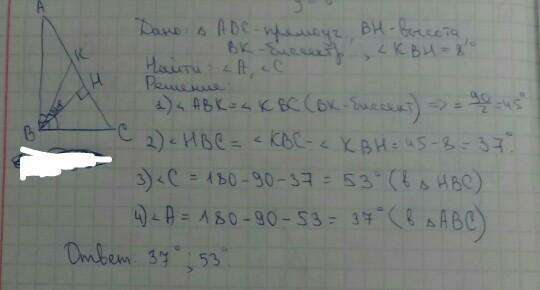 A
K
H
B
C
Дано: △ ABC - прямоуг, BH - высота
BK - биссектр., ∠ KBH = 8°
Найти: ∠A, ∠C
Решение:
1) ∠ ABK = ∠ KBC (BK - биссект) => = 90/2 = 45°
2) ∠ HBC = ∠ KBC - ∠ KBH = 45 - 8 = 37°
3) ∠ C = 180 - 90 - 37 = 53° (в △ HBC)
4) ∠ A = 180 - 90 - 53 = 37° (в △ ABC)
Ответ: 37°; 53°.